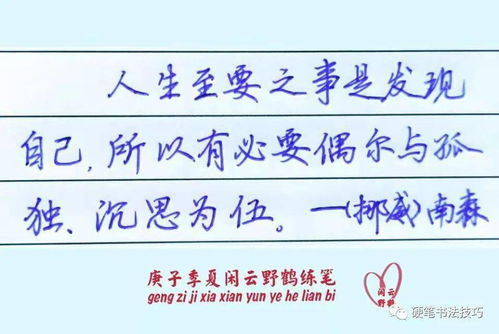 人生至要之事是发现
自己,所以有必要偶尔与孤
独、沉思为伍。—(挪威)南森
庚子季夏闲云野鹤练笔
geng zi ji xia xian yun ye he lian bi
闲云
野鹤
硬笔书法技巧